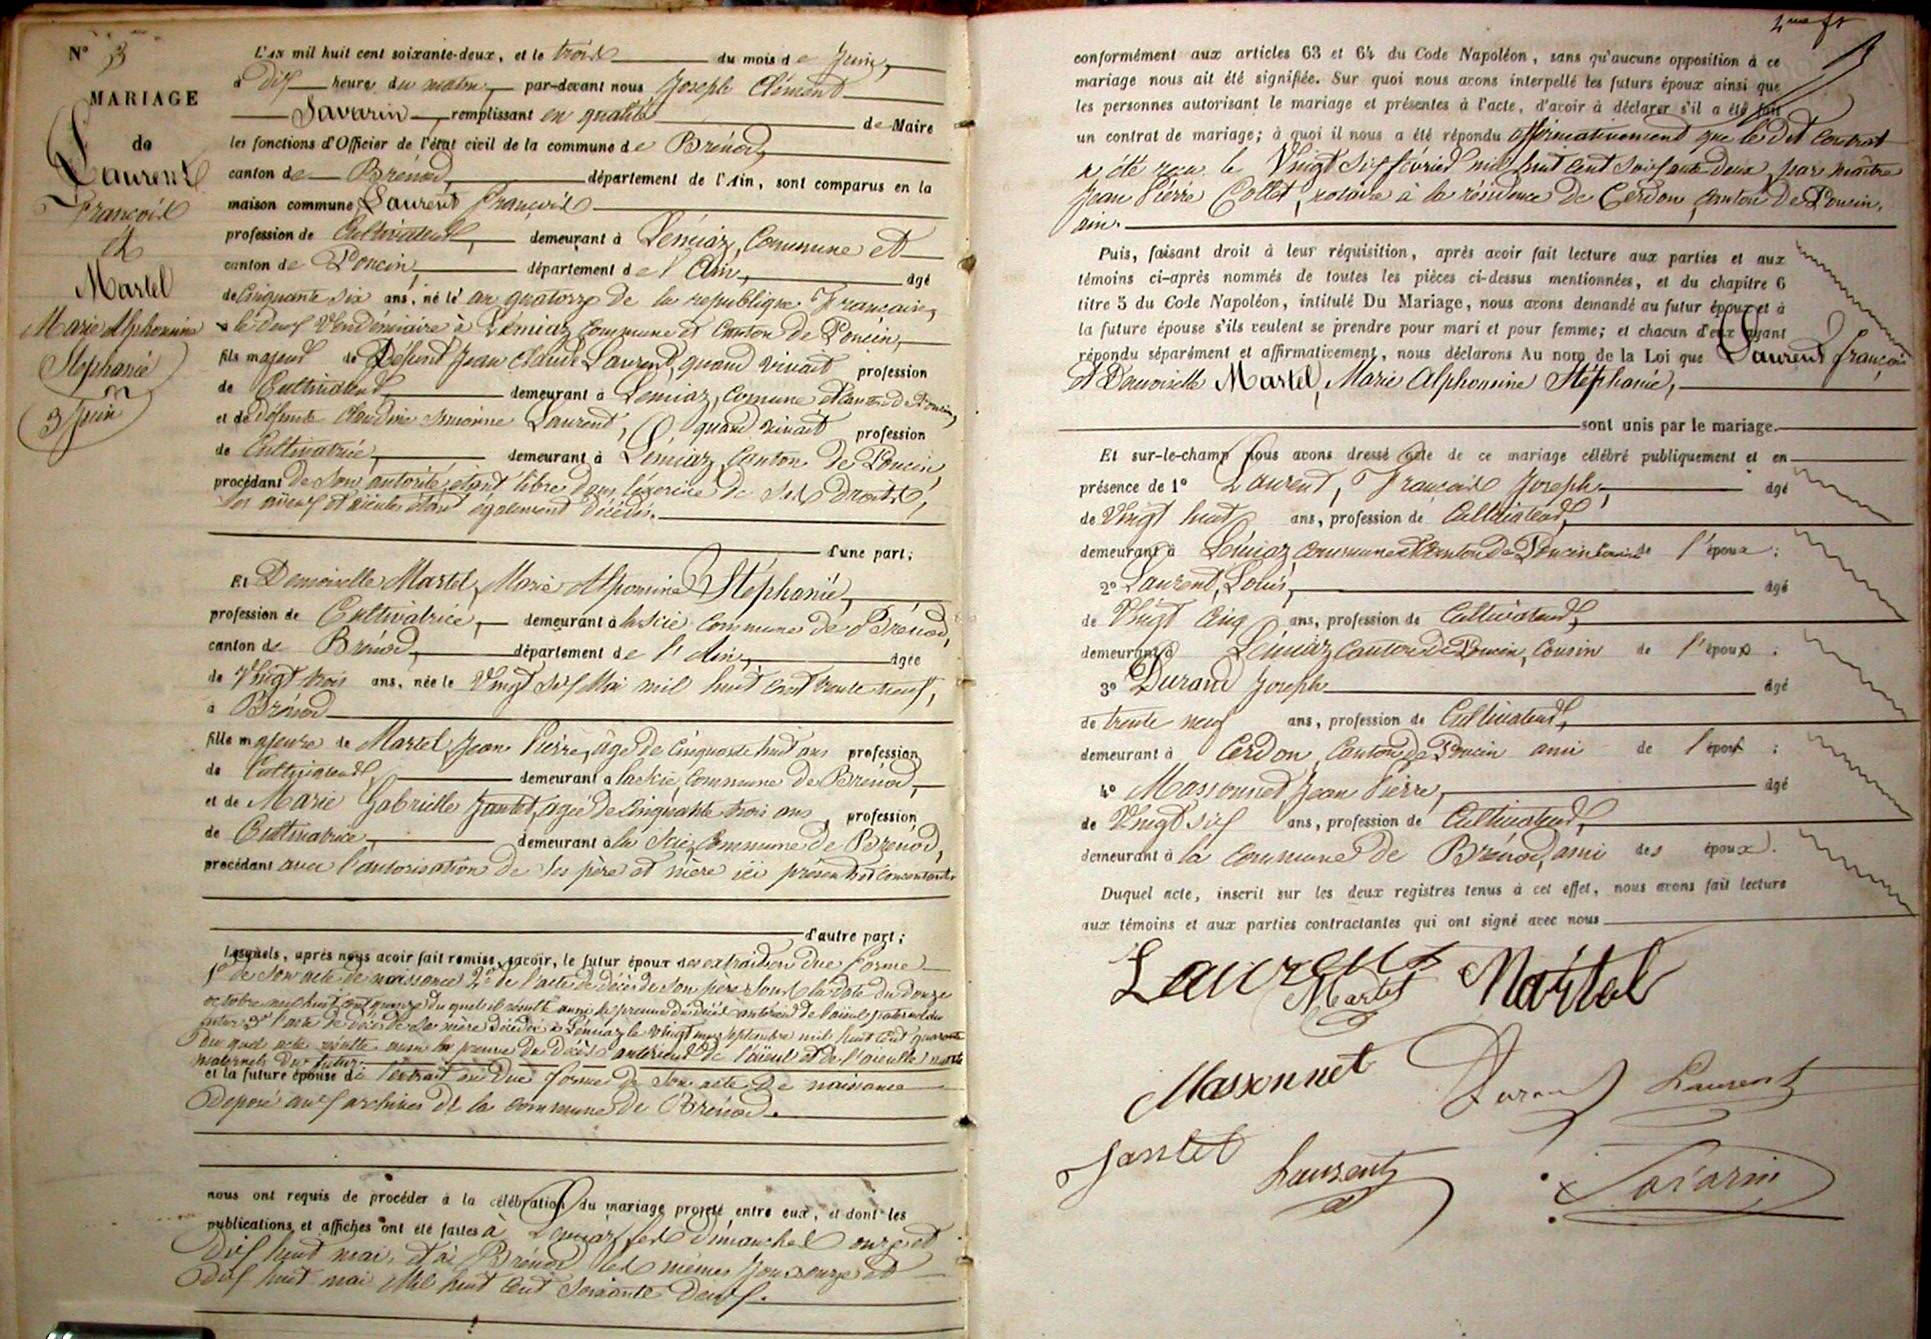 N° 3
MARIAGE
de
Laurent
François
et
Martel
Marie Alphonsine
Stéphanie
3 Juin
L'AN mil huit cent soixante-deux, et le trois du mois de Juin,
à dix heures du matin, par-devant nous Joseph Clément
Savarin, remplissant en qualité de Maire
les fonctions d'Officier de l'état civil de la commune de Brénod,
canton de Brénod, département de l'Ain, sont comparus en la
maison commune Laurent François
profession de Cultivateur, demeurant à Lémiaz, Commune et
canton de Poncin, département de l'Ain, âgé
de Cinquante six ans, né le an quatorze de la republique Francaise,
le deux Vendémiaire à Lémiaz commune et Canton de Poncin,
fils majeur de Défunt Jean Claude Laurent, quand vivait profession
de Cultivateur, demeurant à Lemiaz, Comune et Canton de Poncin,
et de défunte Claudine Laurent, quand vivait profession
de Cultivatrice, demeurant à Lémiaz, Canton de Poncin,
procédant de son autorité, étant libre dans l'exercice de ses droits,
ses aïeux et aïeules étant également décédés.
d'une part;
Et Demoiselle Martel, Marie Alponsine Stéphanie,
profession de Cultivatrice, demeurant à la Scie commune de Brénod,
canton de Brénod, département de l'Ain, âgée
de Vingt trois ans, née le Vingt six Mai mil huit cent trente neuf,
à Brénod
fille majeure de Martel, Jean Pierre, âgé de Cinquante huit ans profession
de Cultivateur, demeurant à la Scie, Commune de Brénod,
et de Marie Gabrielle Jantet, agée de Cinquante trois ans, profession
de Cultivatrice, demeurant à la Scie, Commune de Brénod,
procédant avec l'autorisation de ses père et mère ici présents et consentants
d'autre part;
Lesquels, après nous avoir fait remise, savoir, le futur époux des extraits en due forme
1° de son acte de naissance 2° de l'acte de décès de son père sous la date du douze
octobre mil huit cent quinze duquel il résulte aussi la preuve du décès antérieur de l'aïeul paternel du
futur 3° l'acte de décès de sa mère décédée à Lémiaz le vingt septembre mil huit cent quarante
du quel acte résulte aussi la preuve du décès antérieur de l'aïeul et de l'aïeule
maternels du futur.
et la future épouse de l'extrait en due forme de son acte de naissance
déposé aux archives de la commune de Brénod.
nous ont requis de procéder à la célébration du mariage projeté entre eux, et dont les
publications et affiches ont été faites à Lemiaz les dimanches onze et
dix huit mai, et à Brénod les mêmes jours onze et
dix huit mai Mil huit cent soixante deux.
conformément aux articles 63 et 64 du Code Napoléon, sans qu'aucune opposition à ce
mariage nous ait été signifiée. Sur quoi nous avons interpellé les futurs époux ainsi que
les personnes autorisant le mariage et présentes à l'acte, d'avoir à déclarer s'il a été fait
un contrat de mariage; à quoi il nous a été répondu affirmativement que le dit Contrat
a été reçu le Vingt six février mil huit cent soixante deux, par maître
Jean Pierre Collet, notaire à la résidence de Cerdon, Canton de Poncin,
ain.
Puis, faisant droit à leur réquisition, après avoir fait lecture aux parties et aux
témoins ci-après nommés de toutes les pièces ci-dessus mentionnées, et du chapitre 6
titre 5 du Code Napoléon, intitulé Du Mariage, nous avons demandé au futur époux et à
la future épouse s'ils veulent se prendre pour mari et pour femme; et chacun d'eux ayant
répondu séparément et affirmativement, nous déclarons Au nom de la Loi que Laurent françois
et Demoiselle Martel, Marie Alphonsine Stéphanie,
sont unis par le mariage.
Et sur-le-champ nous avons dressé acte de ce mariage célébré publiquement et en
présence de 1° Laurent, François Joseph, âgé
de Vingt huit ans, profession de Cultivateur,
demeurant à Lémiaz, commune et Canton de Poncin Cousin de l'époux;
2° Laurent, Louis, âgé
de Vingt Cinq ans, profession de Cultivateur,
demeurant à Lémiaz Canton de Poncin, Cousin de l'époux;
3° Durand Joseph âgé
de trente neuf ans, profession de Cultivateur,
demeurant à Cerdon, Canton de Poncin ami de l'époux;
4° Massonnet, Jean Pierre, âgé
de Vingt six ans, profession de Cultivateur,
demeurant à la Commune de Brénod, ami des époux.
Duquel acte, inscrit sur les deux registres tenus à cet effet, nous avons fait lecture
aux témoins et aux parties contractantes qui ont signé avec nous
Laurent Martel Martel
Massonnet Durand Laurent
Jantet Laurent Savarin